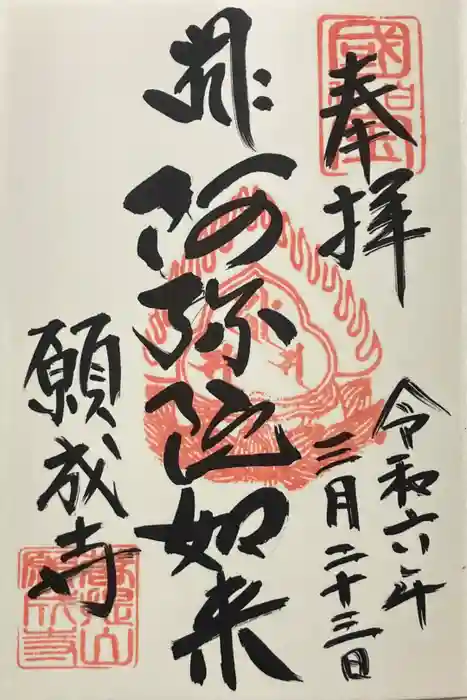 奉拝
令和六年
二月二十三日
阿弥陀如来
願成寺
國寶